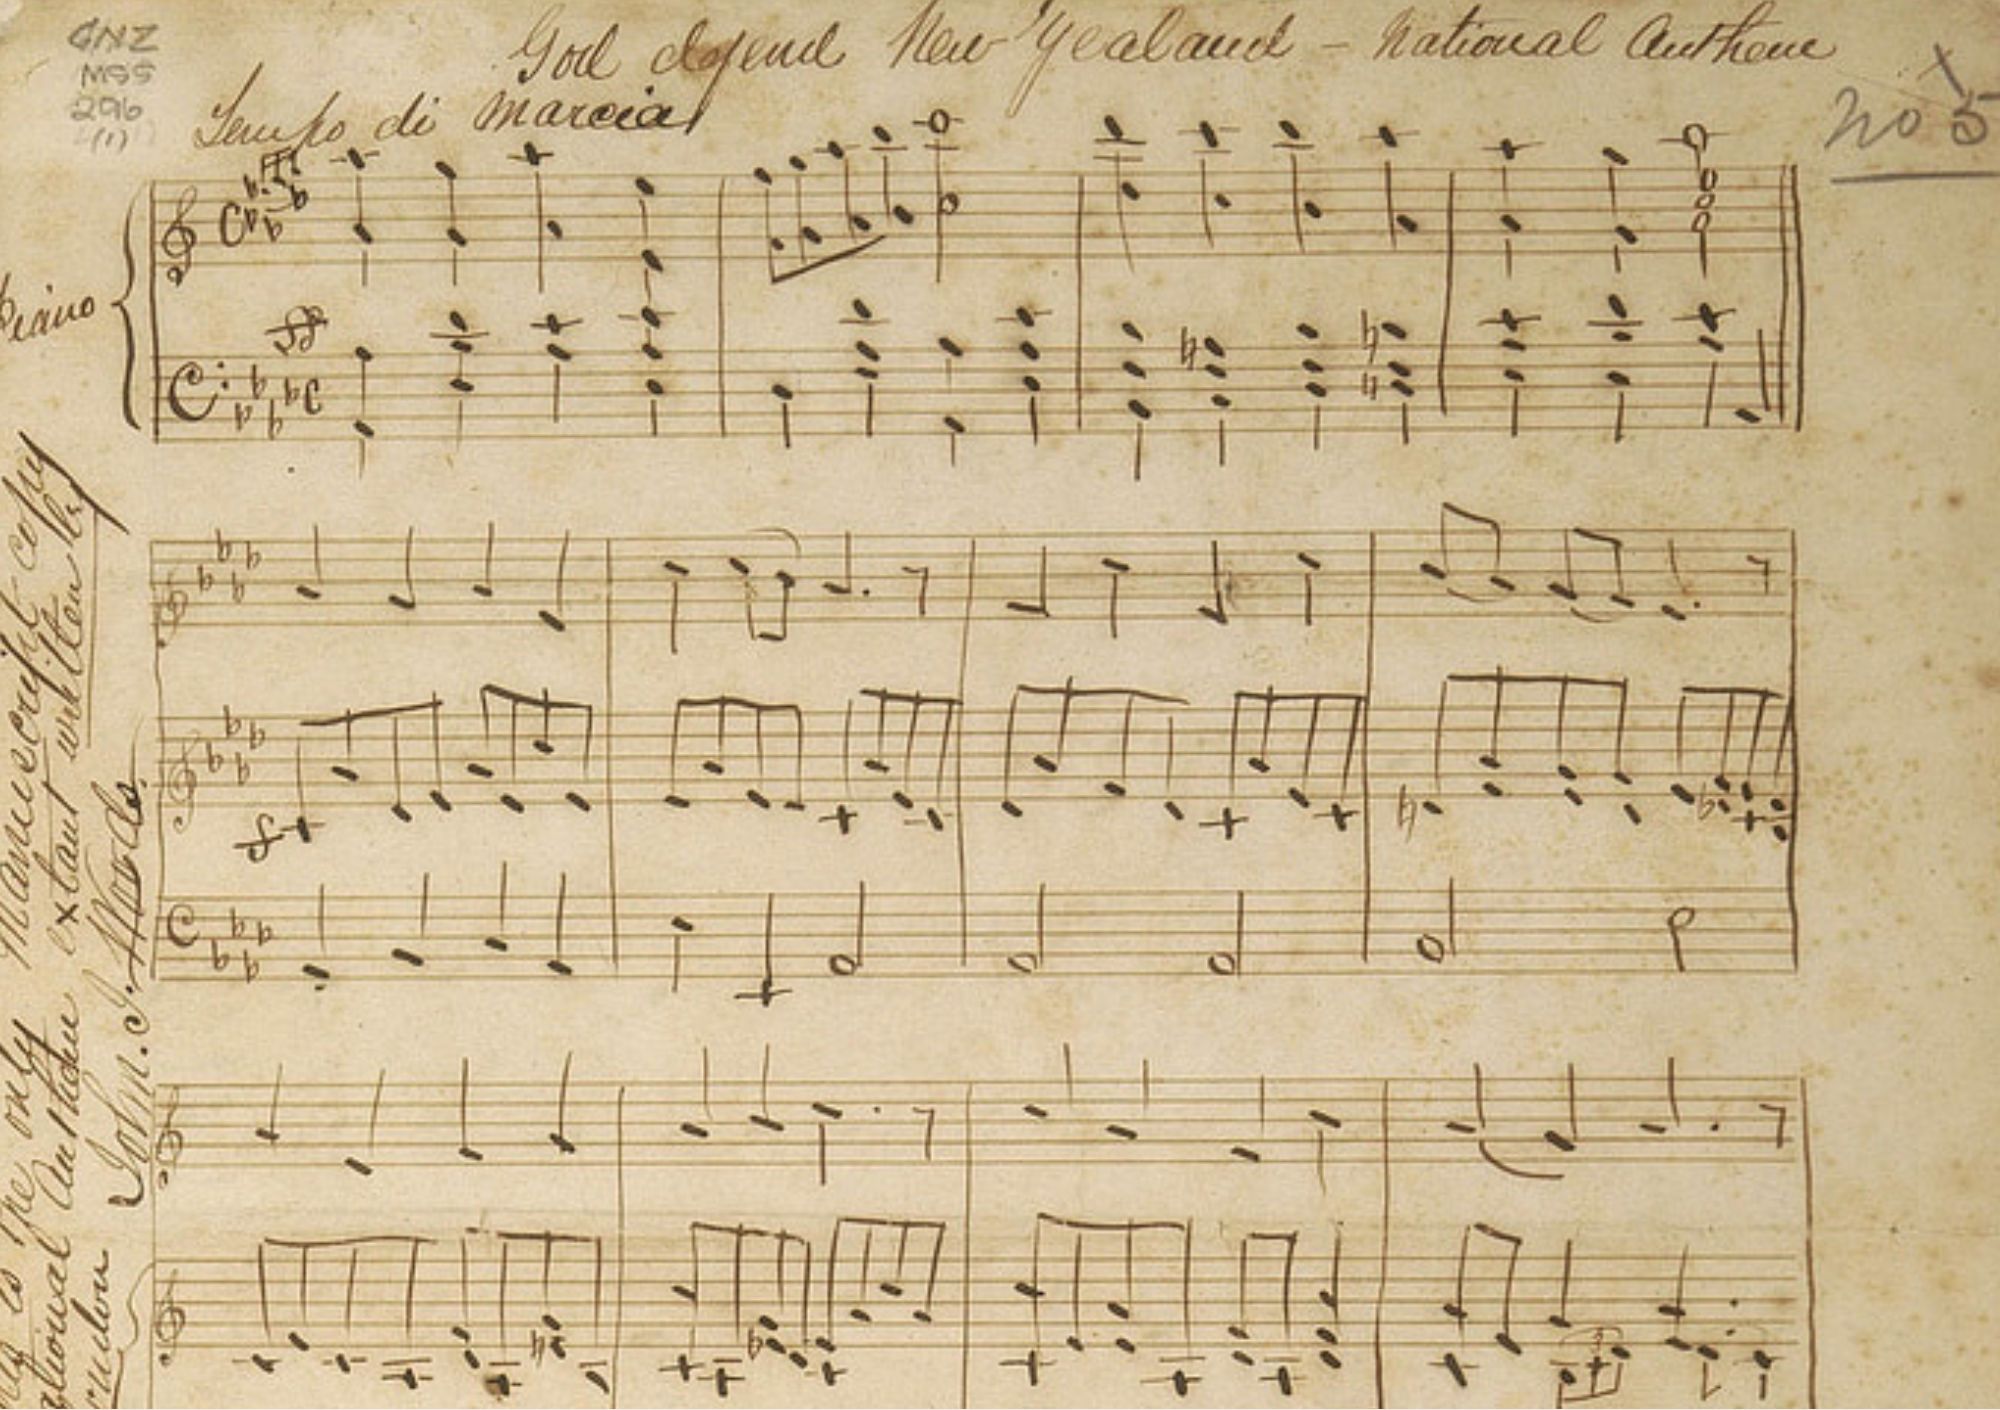 GNZ
MSS
296
(1)
God defend New Zealand - National Anthem
No 5
Tempo di Marcia
Piano
ff
f
is the only Manuscript copy
National Anthem extant written by
John. J. Woods.